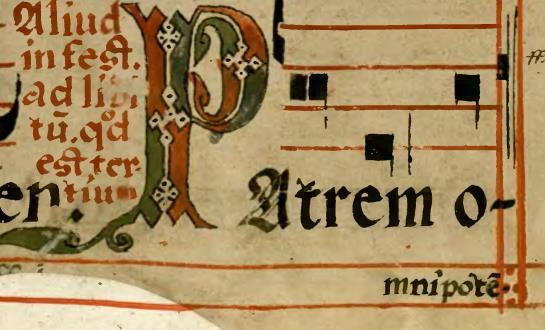 Aliud
in fest.
ad libi
tũ. qd
est ter-
tium
en.
P Atrem o-
mnipotẽ-